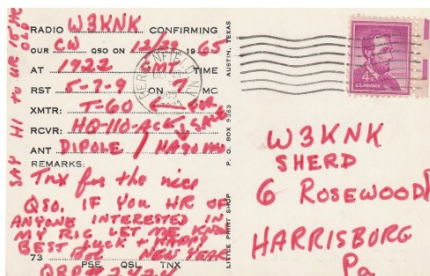 RADIO W3KNK CONFIRMING
OUR CW QSO ON 12/29 1965
AT 1922 GMT TIME
RST 5-7-9 ON 7 MC
XMTR: T-60 ← FOR
RCVR: HQ-110-AC
ANT DIPOLE /
REMARKS:
Tnx for the nice
QSO. IF YOU HR OF
ANYONE INTERESTED IN
MY RIG LET ME KNOW
BEST LUCK + HAPPY
NEW YEAR
73 PSE QSL TNX
SAY HI to UR
OLD
LITTLE PRINT SHOP P. O. BOX AUSTIN, TEXAS
4¢
W3KNK
SHERD
6 ROSEWOOD
HARRISBURG